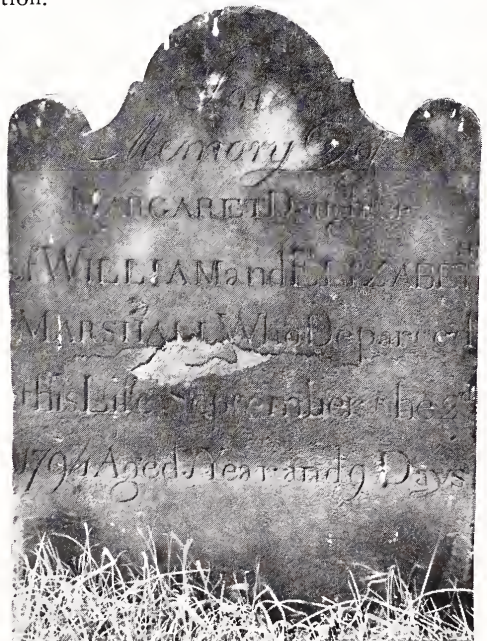 tion.
In
Memory Of
MARGARET Daughter
of WILLIAM and ELIZABETH
MARSHALL Who Departed
this Life September the 2d
1794 Aged 1 Year and 9 Days